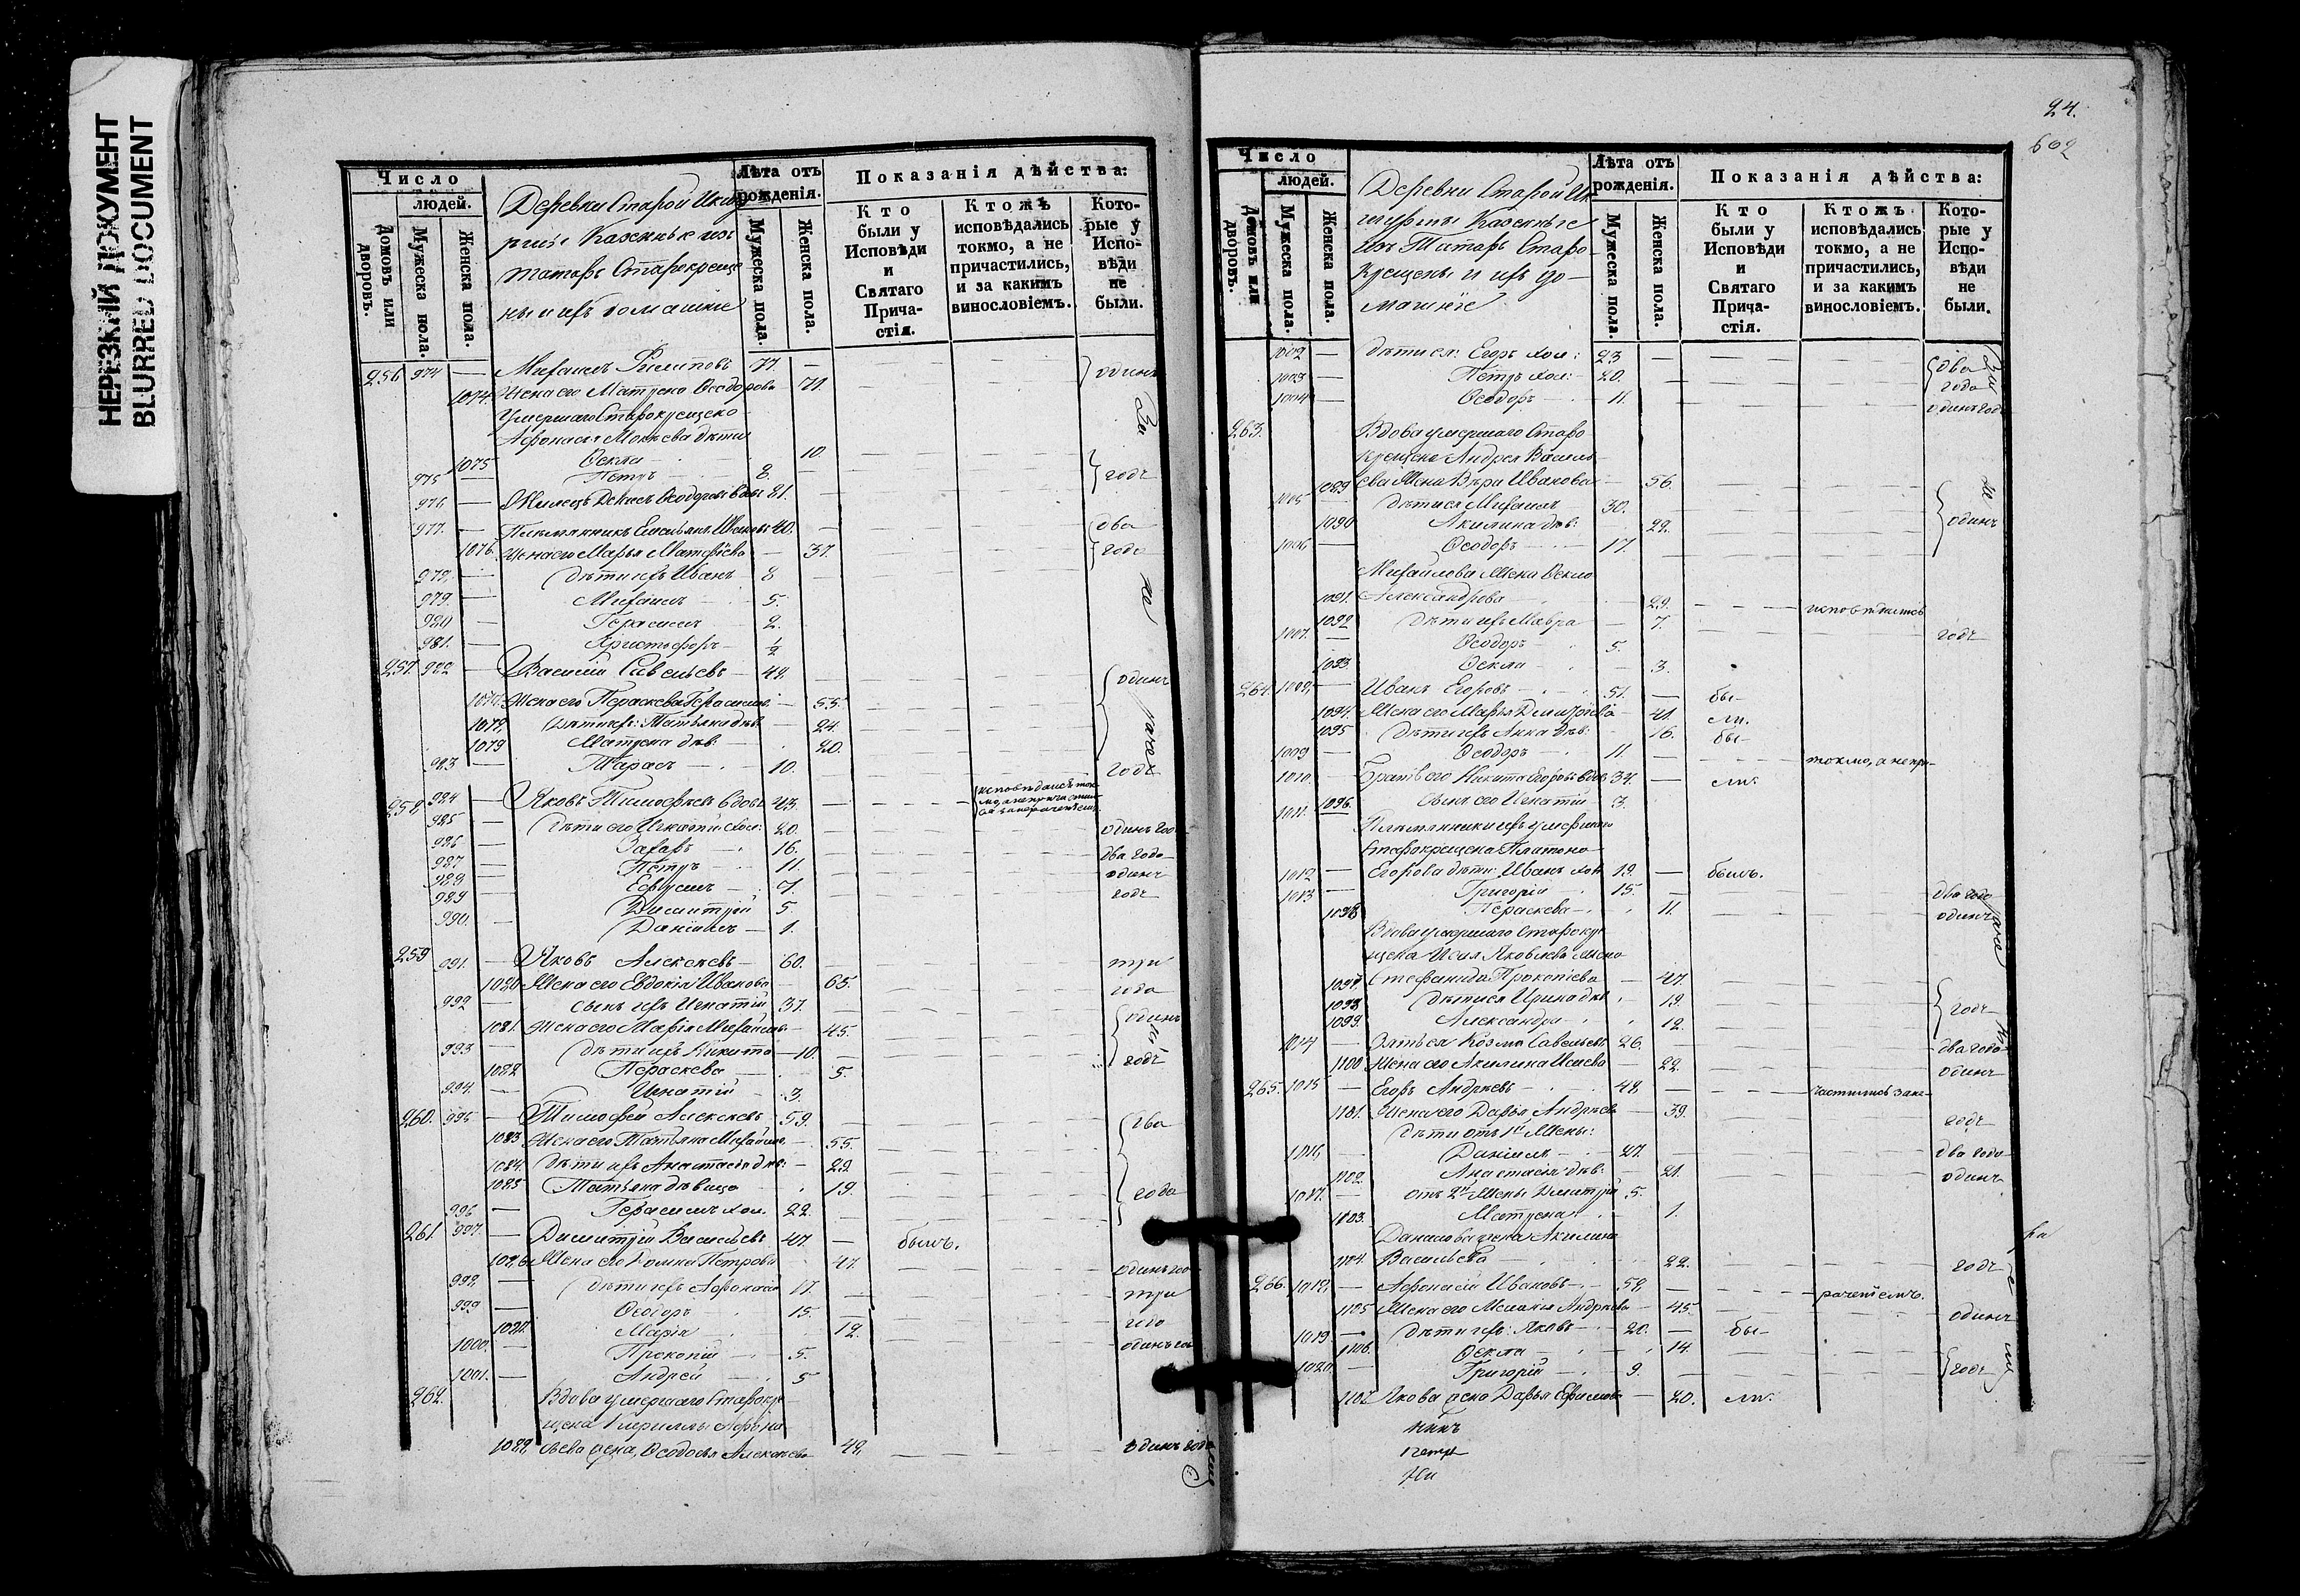 НЕРЕЗКИЙ ДОКУМЕНТ
BLURRED DOCUMENT
Число
людей.
Домовъ или дворовъ.
Мужеска пола.
Женска пола.
Деревни Старой
Казенные изъ
татаръ Старокреще
ны и ихъ домашніе
Лѣта отъ рожденія.
Мужеска пола.
Женска пола.
Показанія дѣйства:
Кто были у Исповѣди и Святаго Причастія.
Ктожъ исповѣдались токмо, а не причастились, и за какимъ винословіемъ.
Которые у Исповѣди не были.
256 974 — Михаилъ Филиповъ 77. — одинъ
1074. Жена его Матрена Ѳеодорова — 71.
Умершаго Старокрещена
Афонасья дѣти
1075 Ѳекла 10.
975 — Петръ 8. годъ
976 — Денисъ Ѳеодоровъ вдовъ 81.
977. — Племянникъ Емельянъ Ивановъ 40. два
1076. Жена его Марья Матвѣева — 37. года
978. — дѣти ихъ Иванъ 8
979. — Михаилъ — 5.
980 — Герасимъ — 2.
981. — Христофоръ — ½
257. 982 — Василій Савельевъ — 48. одинъ
1077. Жена его Параскева Герасимова — 55.
1078. Дѣти ихъ: Татьяна дѣв: — 24.
1079 Матрена дѣв: — 20.
983 — Тарасъ — 10. годъ
258. 984 — Яковъ Тимофеевъ вдовъ 43. —
985 — дѣти его Игнатій хол: 20. одинъ год
986 — Захаръ — 16. два года
987 — Петръ 11. одинъ
988 — Ефремъ — 7. годъ
989 Димитрій 5.
990. — Даніилъ — 1.
259 991. — Яковъ Алексѣевъ — 60. три
1080 Жена его Евдокія Иванова 65. года
992 — сынъ ихъ Игнатій 37. одинъ
1081. Жена его Марія Михайлова — 45.
993 — дѣти ихъ Никита — 10. годъ
1082 Параскева — 5.
994. — Игнатій — 3.
260. 995 — Тимофей Алексѣевъ 59. два
1083 Жена его Татьяна Михайлова — 55.
1084. дѣти ихъ Анастасія дѣв: — 29.
1085 Татьяна дѣвица 19. года
996 — Герасимъ хол. 22.
261. 997. — Димитрій Васильевъ 47. — былъ.
1086 Жена его Домна Петрова 47. одинъ го
998 — дѣти ихъ Афонасій 17. три
999 — Ѳеодоръ 15. года
1087. Марія — 12.
1000. — Прокопій — 5. одинъ го
1001. — Андрей 5
262. Вдова умершаго Старокре
щена Кирилы Афона
1088 сьева жена, Ѳеодосья Алексѣева 48. одинъ годъ
24.
602
Число
людей.
Домовъ или дворовъ.
Мужеска пола.
Женска пола.
Деревни Старой
Казенные
изъ Татаръ Старо
крещены и ихъ до—
машніе
Лѣта отъ рожденія.
Мужеска пола.
Женска пола.
Показанія дѣйства:
Кто были у Исповѣди и Святаго Причастія.
Ктожъ исповѣдались токмо, а не причастились, и за какимъ винословіемъ.
Которые у Исповѣди не были.
1002 — дѣти ея: Егоръ хол: 23 — два
1003 — Петръ хол: 20. года
1004 — Ѳеодоръ — 11. одинъ годъ
263. Вдова умершаго Старо
крещена Андрея Василь
1089 ева жена Вѣра Иванова — 56.
1005 дѣти ея Михаилъ 30.
1090 Акилина дѣв: 22. одинъ
1006 — Ѳеодоръ — 17.
Михайлова жена Ѳекла
1091. Александрова — 29.
1092 дѣти ихъ Мавра — 7.
1007. — Ѳеодоръ 5. годъ
1093. Ѳекла — 3.
264. 1008. — Иванъ Егоровъ — 51. — бы—
1094. Жена его Марья Димитріева — 41. ли.
1095 дѣти ихъ Анна дѣв: 16. бы—
1009 — Ѳеодоръ — 11. токмо, а не при—
1010. — Братъ его Никита Егоровъ вдовъ 34. — ли.
1011. 1096. сынъ его Игнатій 3.
Племянники ихъ умершаго
Старокрещена Платона
1012 — Егорова дѣти: Иванъ хол 19. — былъ.
1013 — Григорій — 15. — два года
Параскева — 11. одинъ
Вдова умершаго Старокре
щена Исая Яковлева жена
1097. Стефанида Прокопіева — 47.
1098 дѣти ея Ирина дѣв 19. годъ
1099. Александра — 12.
1014 — Зять ея Козма Савельевъ 26. — два года
1100 Жена его Акилина Исаева — 22. одинъ
265. 1015 — Егоръ Андреевъ — 48. —
1101. Жена его Дарья Андреева — 39. годъ
дѣти отъ 1й жены:
1016 — Даніилъ — 27. два года
1102. Анастасія дѣв: — 21. одинъ
1017. — отъ 2й жены Димитрій 5.
1103. Матрена — 1.
Данилова жена Акилина
1104. Васильева 22. годъ
266. 1018. — Афонасій Ивановъ — 58. раченіемъ.
1105 Жена его Андреева — 45. одинъ
1019. — дѣти ихъ: Яковъ — 20. — бы—
1106. Ѳекла — 14.
1020. — Григорій — 9. годъ
1107. Якова жена Дарья Ефимова — 20. ли.